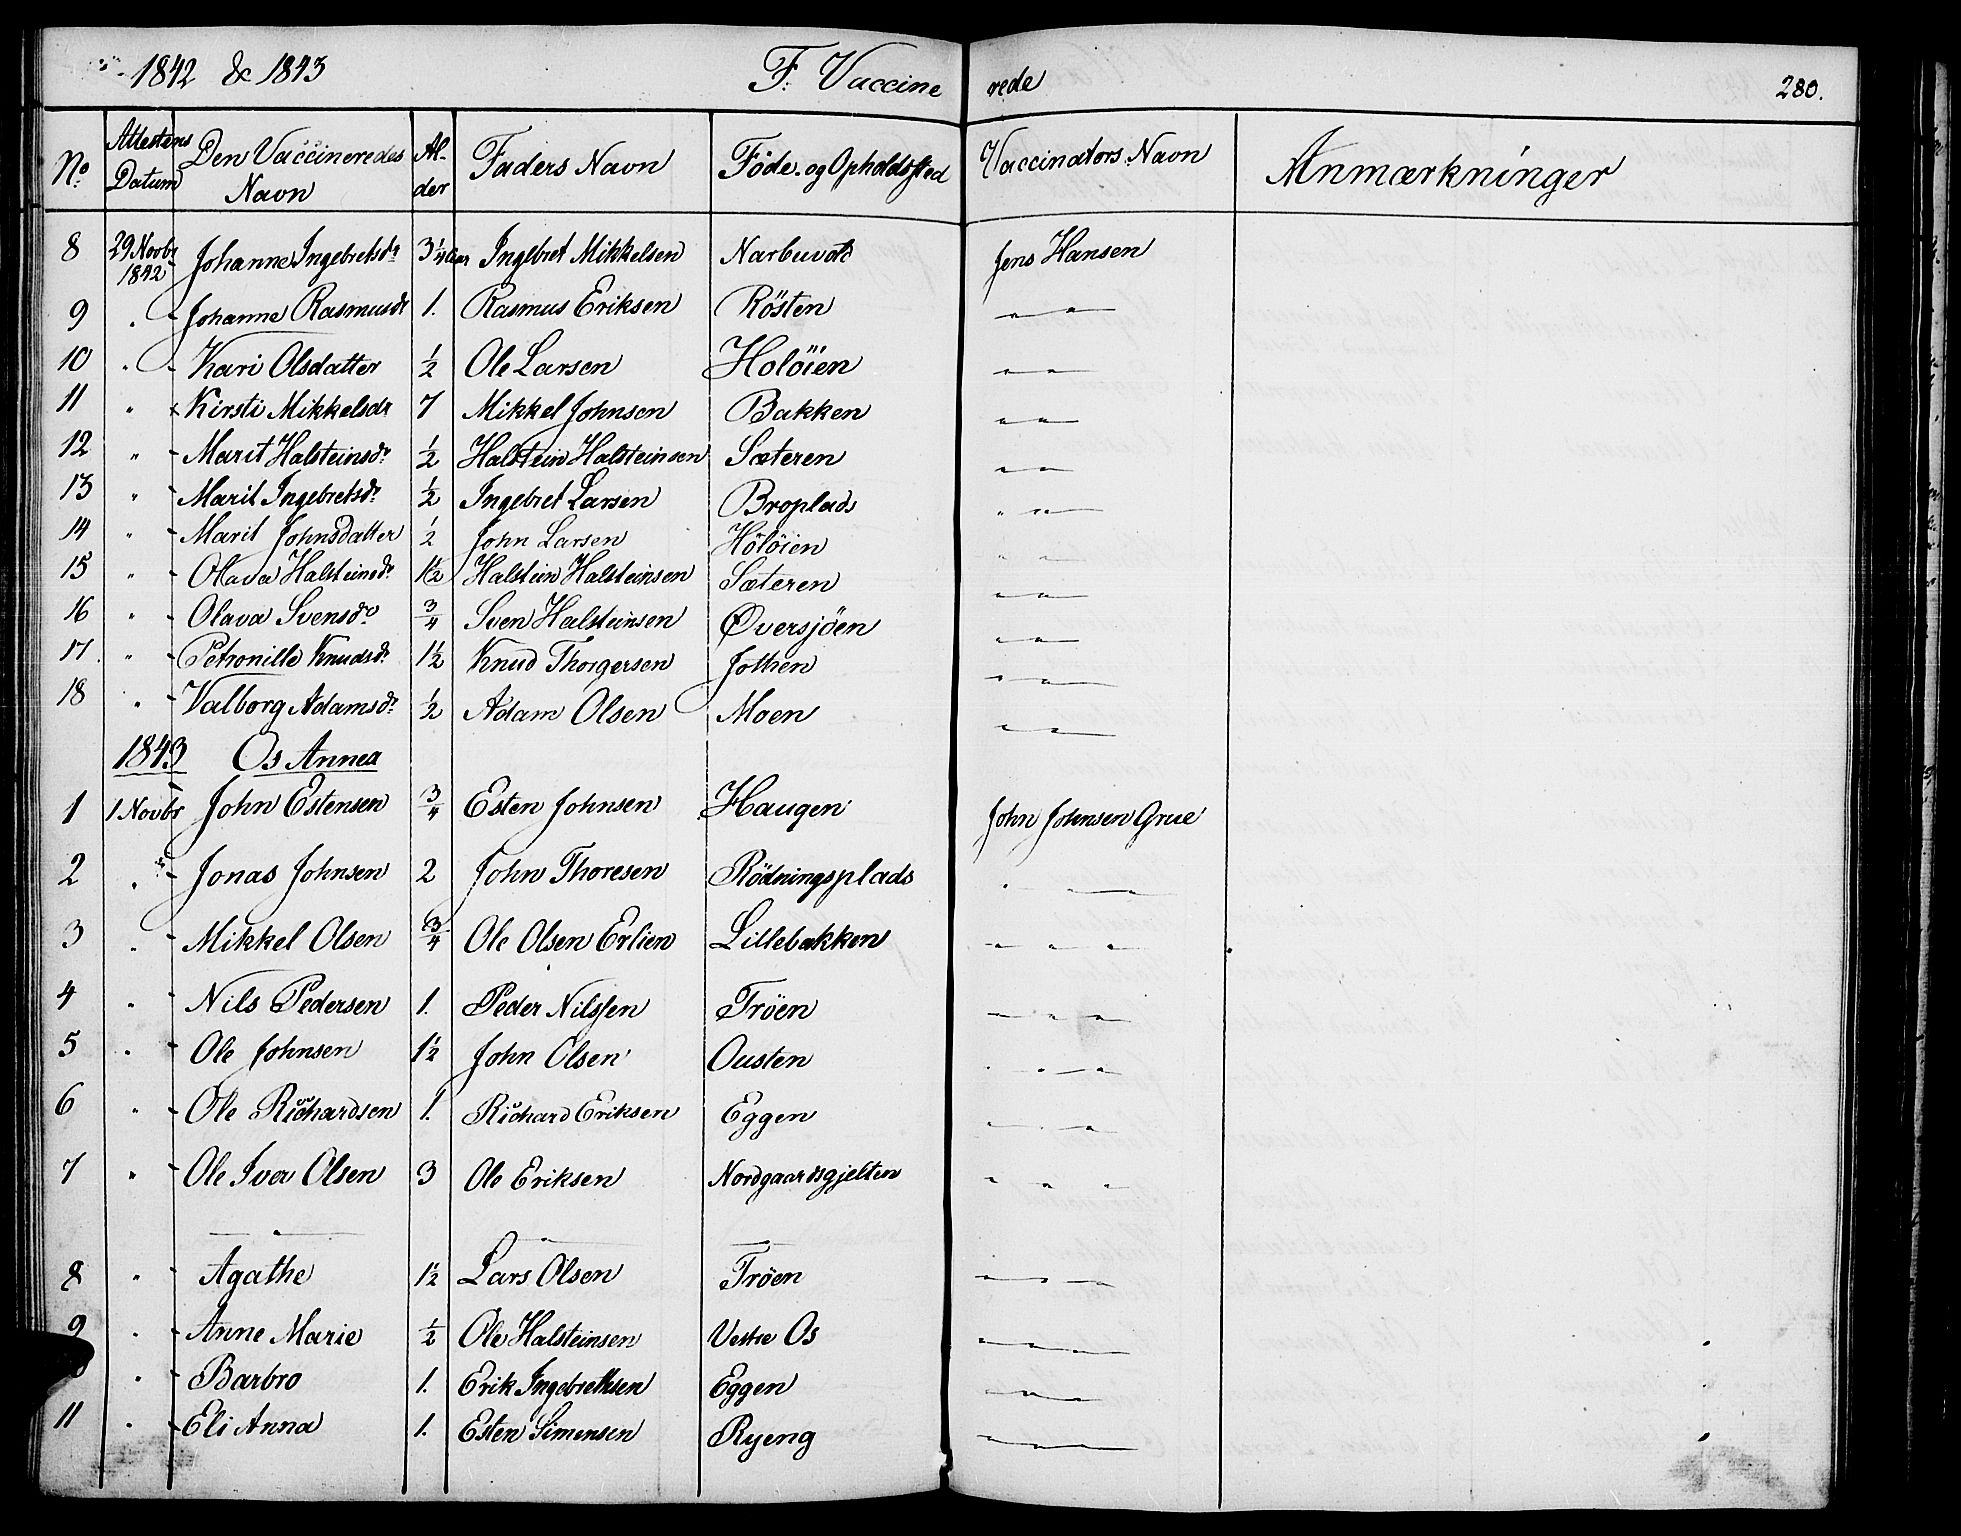 1842 & 1843 F. Vaccine rede 280.
No. Attestens Datum Den Vaccineredes Navn Al- der Faders Navn Föde- og Opholdssted Vaccinators Navn Anmærkninger
8 29 Novbr 1842 Johanne Ingebretsdr 3 1/4 Aar Ingebret Mikkelsen Narbuvold Jens Hansen
9 " - Johanne Rasmusdr 1. Rasmus Eriksen Rösten " "
10 " - Kari Olsdatter 1/2 Ole Larsen Holöien " "
11 " x Kirsti Mikkelsdr 7 Mikkel Johnsen Bakken " "
12 " - Marit Halsteinsdr 1/2 Halstein Halsteinsen Sæteren " "
13 " - Marit Ingebretsdr 1/2 Ingebret Larsen Broplads " "
14 " - Marit Johnsdatter 1/2 John Larsen Holöien " "
15 " - Olava Halsteinsdr 1 1/2 Halstein Halsteinsen Sæteren " "
16 " - Olava Svensdr 3/4 Sven Halsteinsen Øversjöen " "
17. " - Petronille Knudsdr 1 1/2 Knud Thorgersen Jothen " "
18 " - Valborg Adamsdr 1/2 Adam Olsen Moen " "
1843 Os Annex
1 1 Novbr John Estensen 3/4 Esten Johnsen Haugen John Johnsen Grue
2 " - Jonas Johnsen 2 John Thoresen Rödningsplads " " "
3 " - Mikkel Olsen 3/4 Ole Olsen Erlien Lillebakken " " "
4 " - Nils Pedersen 1. Peder Nilssen Tröen " " "
5 " - Ole Johnsen 1 1/2 John Olsen Ousten " " "
6 " - Ole Richardsen 1. Richard Eriksen Eggen " " "
7 " - Ole Iver Olsen 3 Ole Eriksen Nordgaardsgjelten " " "
8 " - Agathe 1 1/2 Lars Olsen Tröen " " "
9 " - Anne Marie 1/2 Ole Halsteinsen Vestre Os " " "
" - Barbro 1. Erik Ingebrethsen Eggen " " "
11 " - Eli Anna 1. Esten Simensen Ryeng " " "